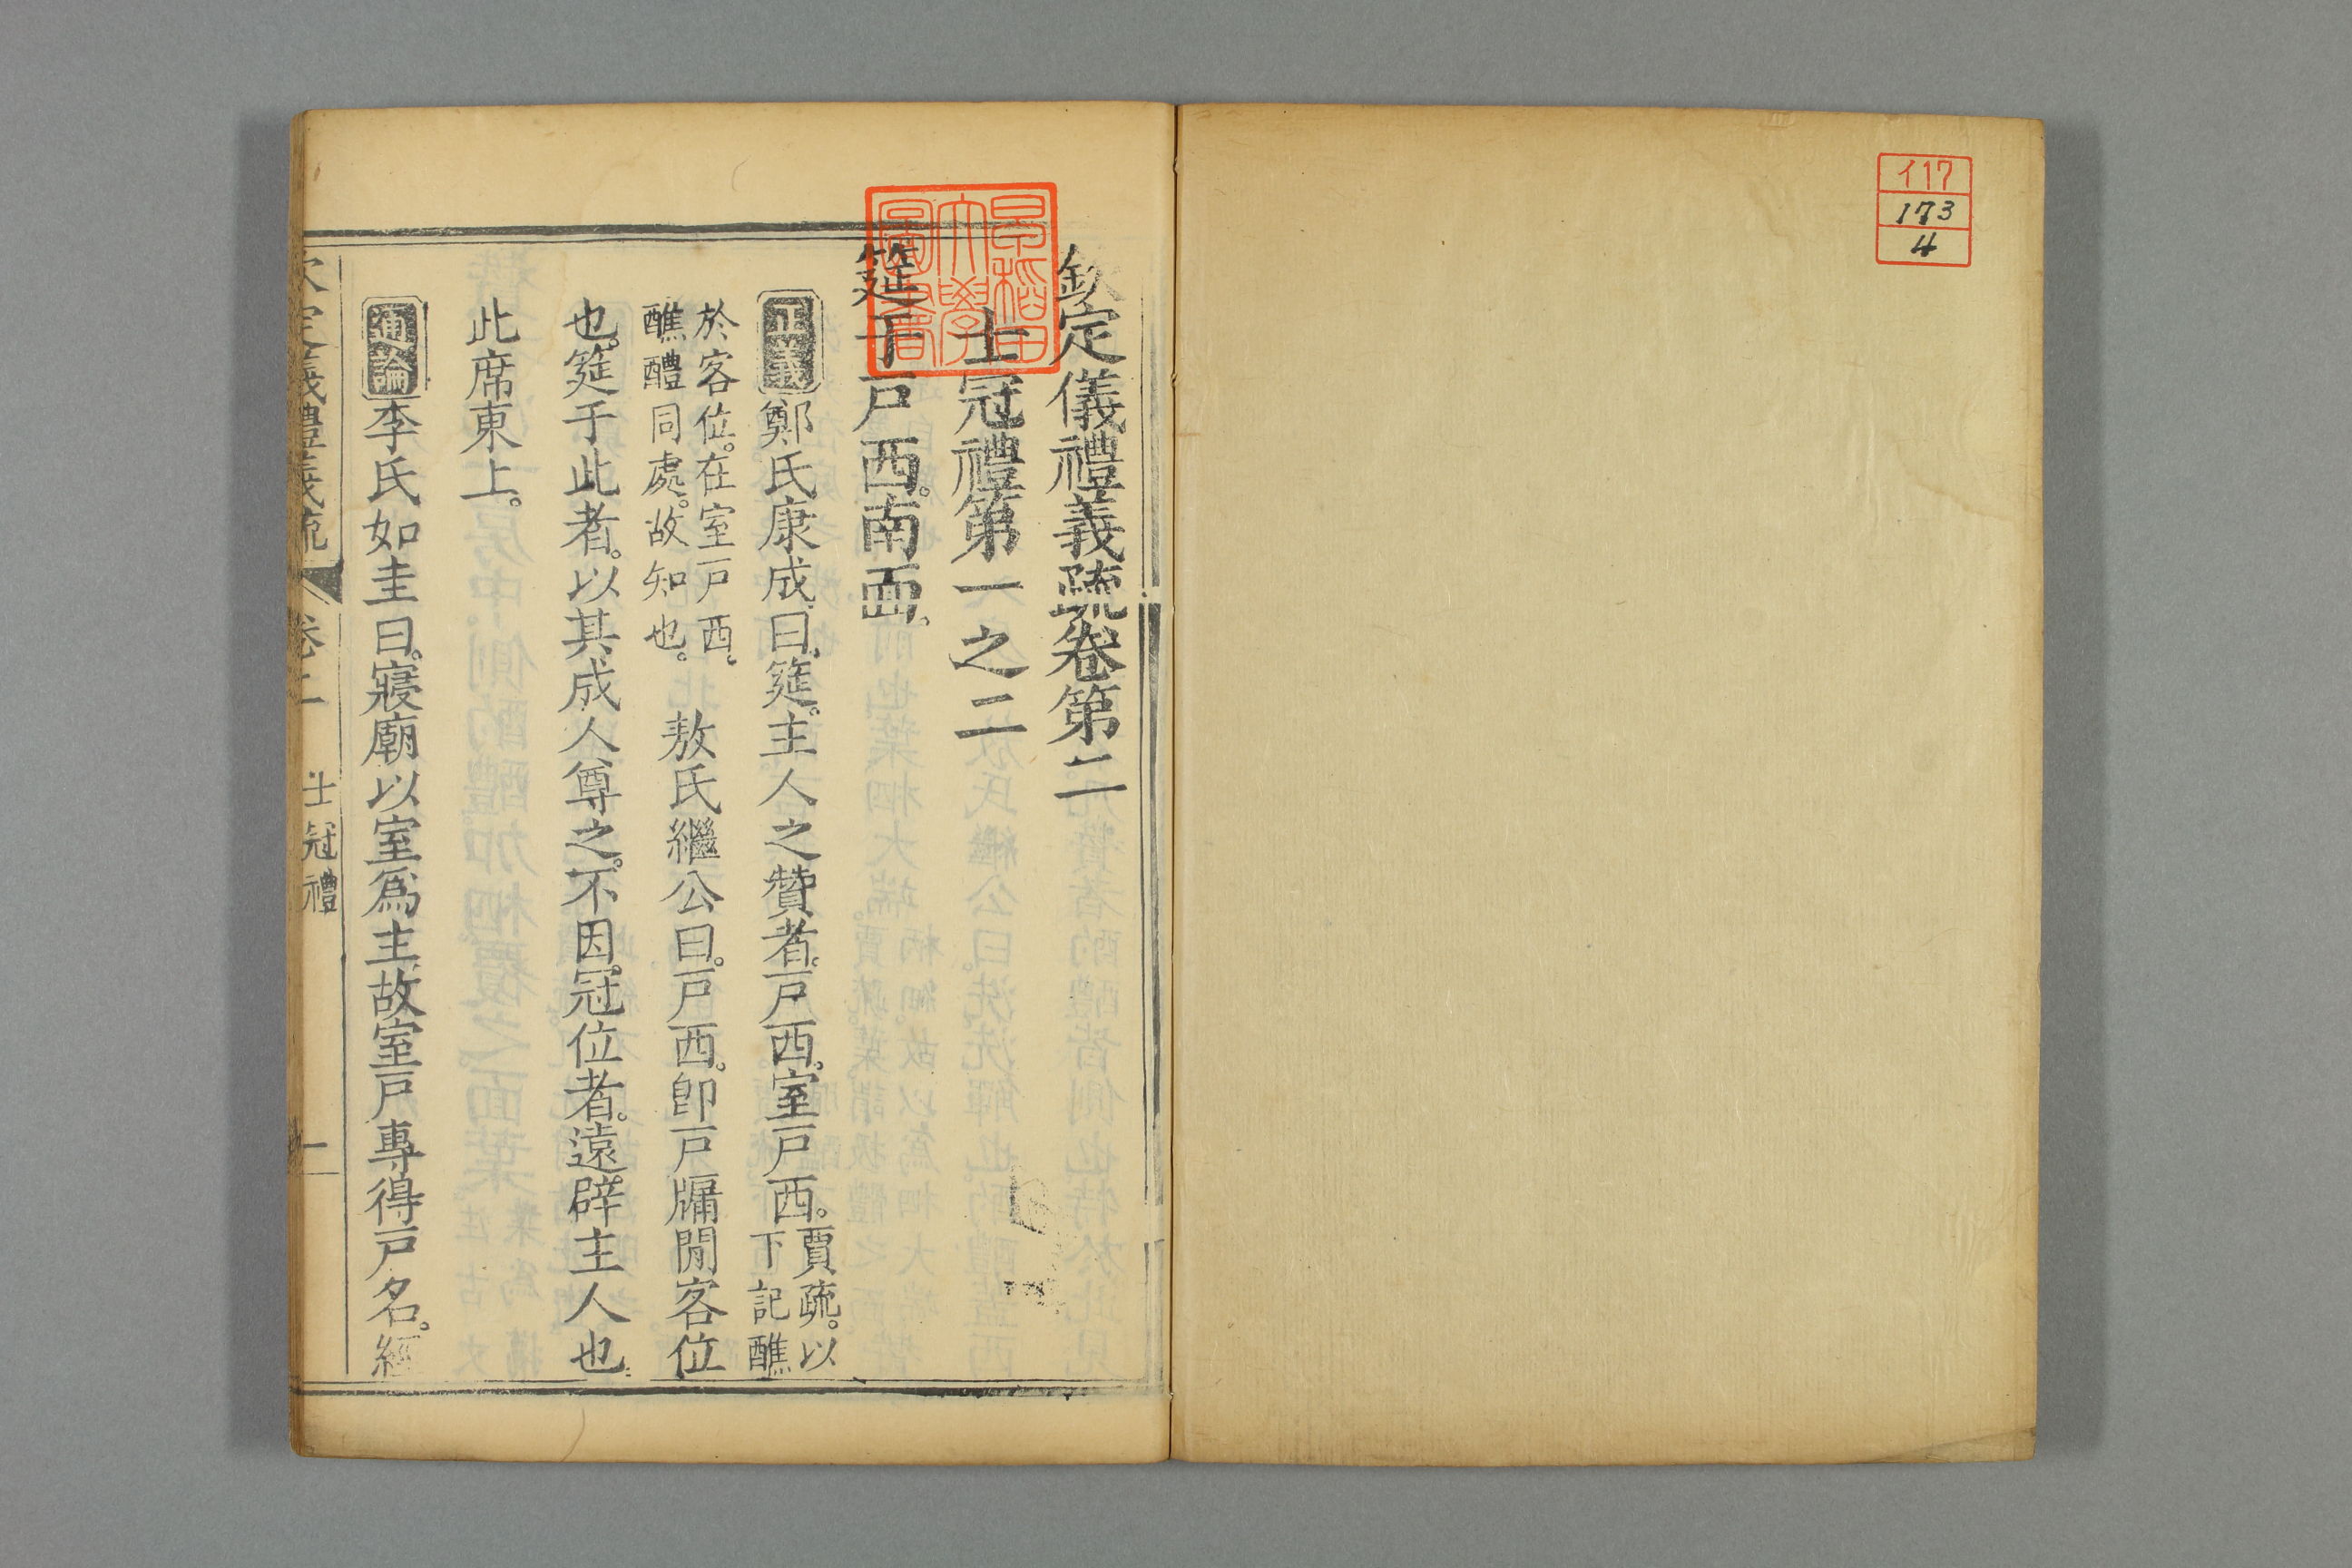 イ17
173
4
欽定儀禮義疏卷第二
士冠禮第一之二
筵于戶西。南面。
正義鄭氏康成曰。筵。主人之贊者。戶西。室戶西。賈疏。以
下記醮
於客位。在室戶西。
醮醴同處。故知也。
敖氏繼公曰。戶西。卽戶牖閒客位
也。筵于此者。以其成人尊之。不因冠位者。遠辟主人也。
此席東上。
通論李氏如圭曰。寢廟以室爲主。故室戶專得戶名。經
欽定儀禮義疏 卷二 士冠禮 一
早稻田大學圖書